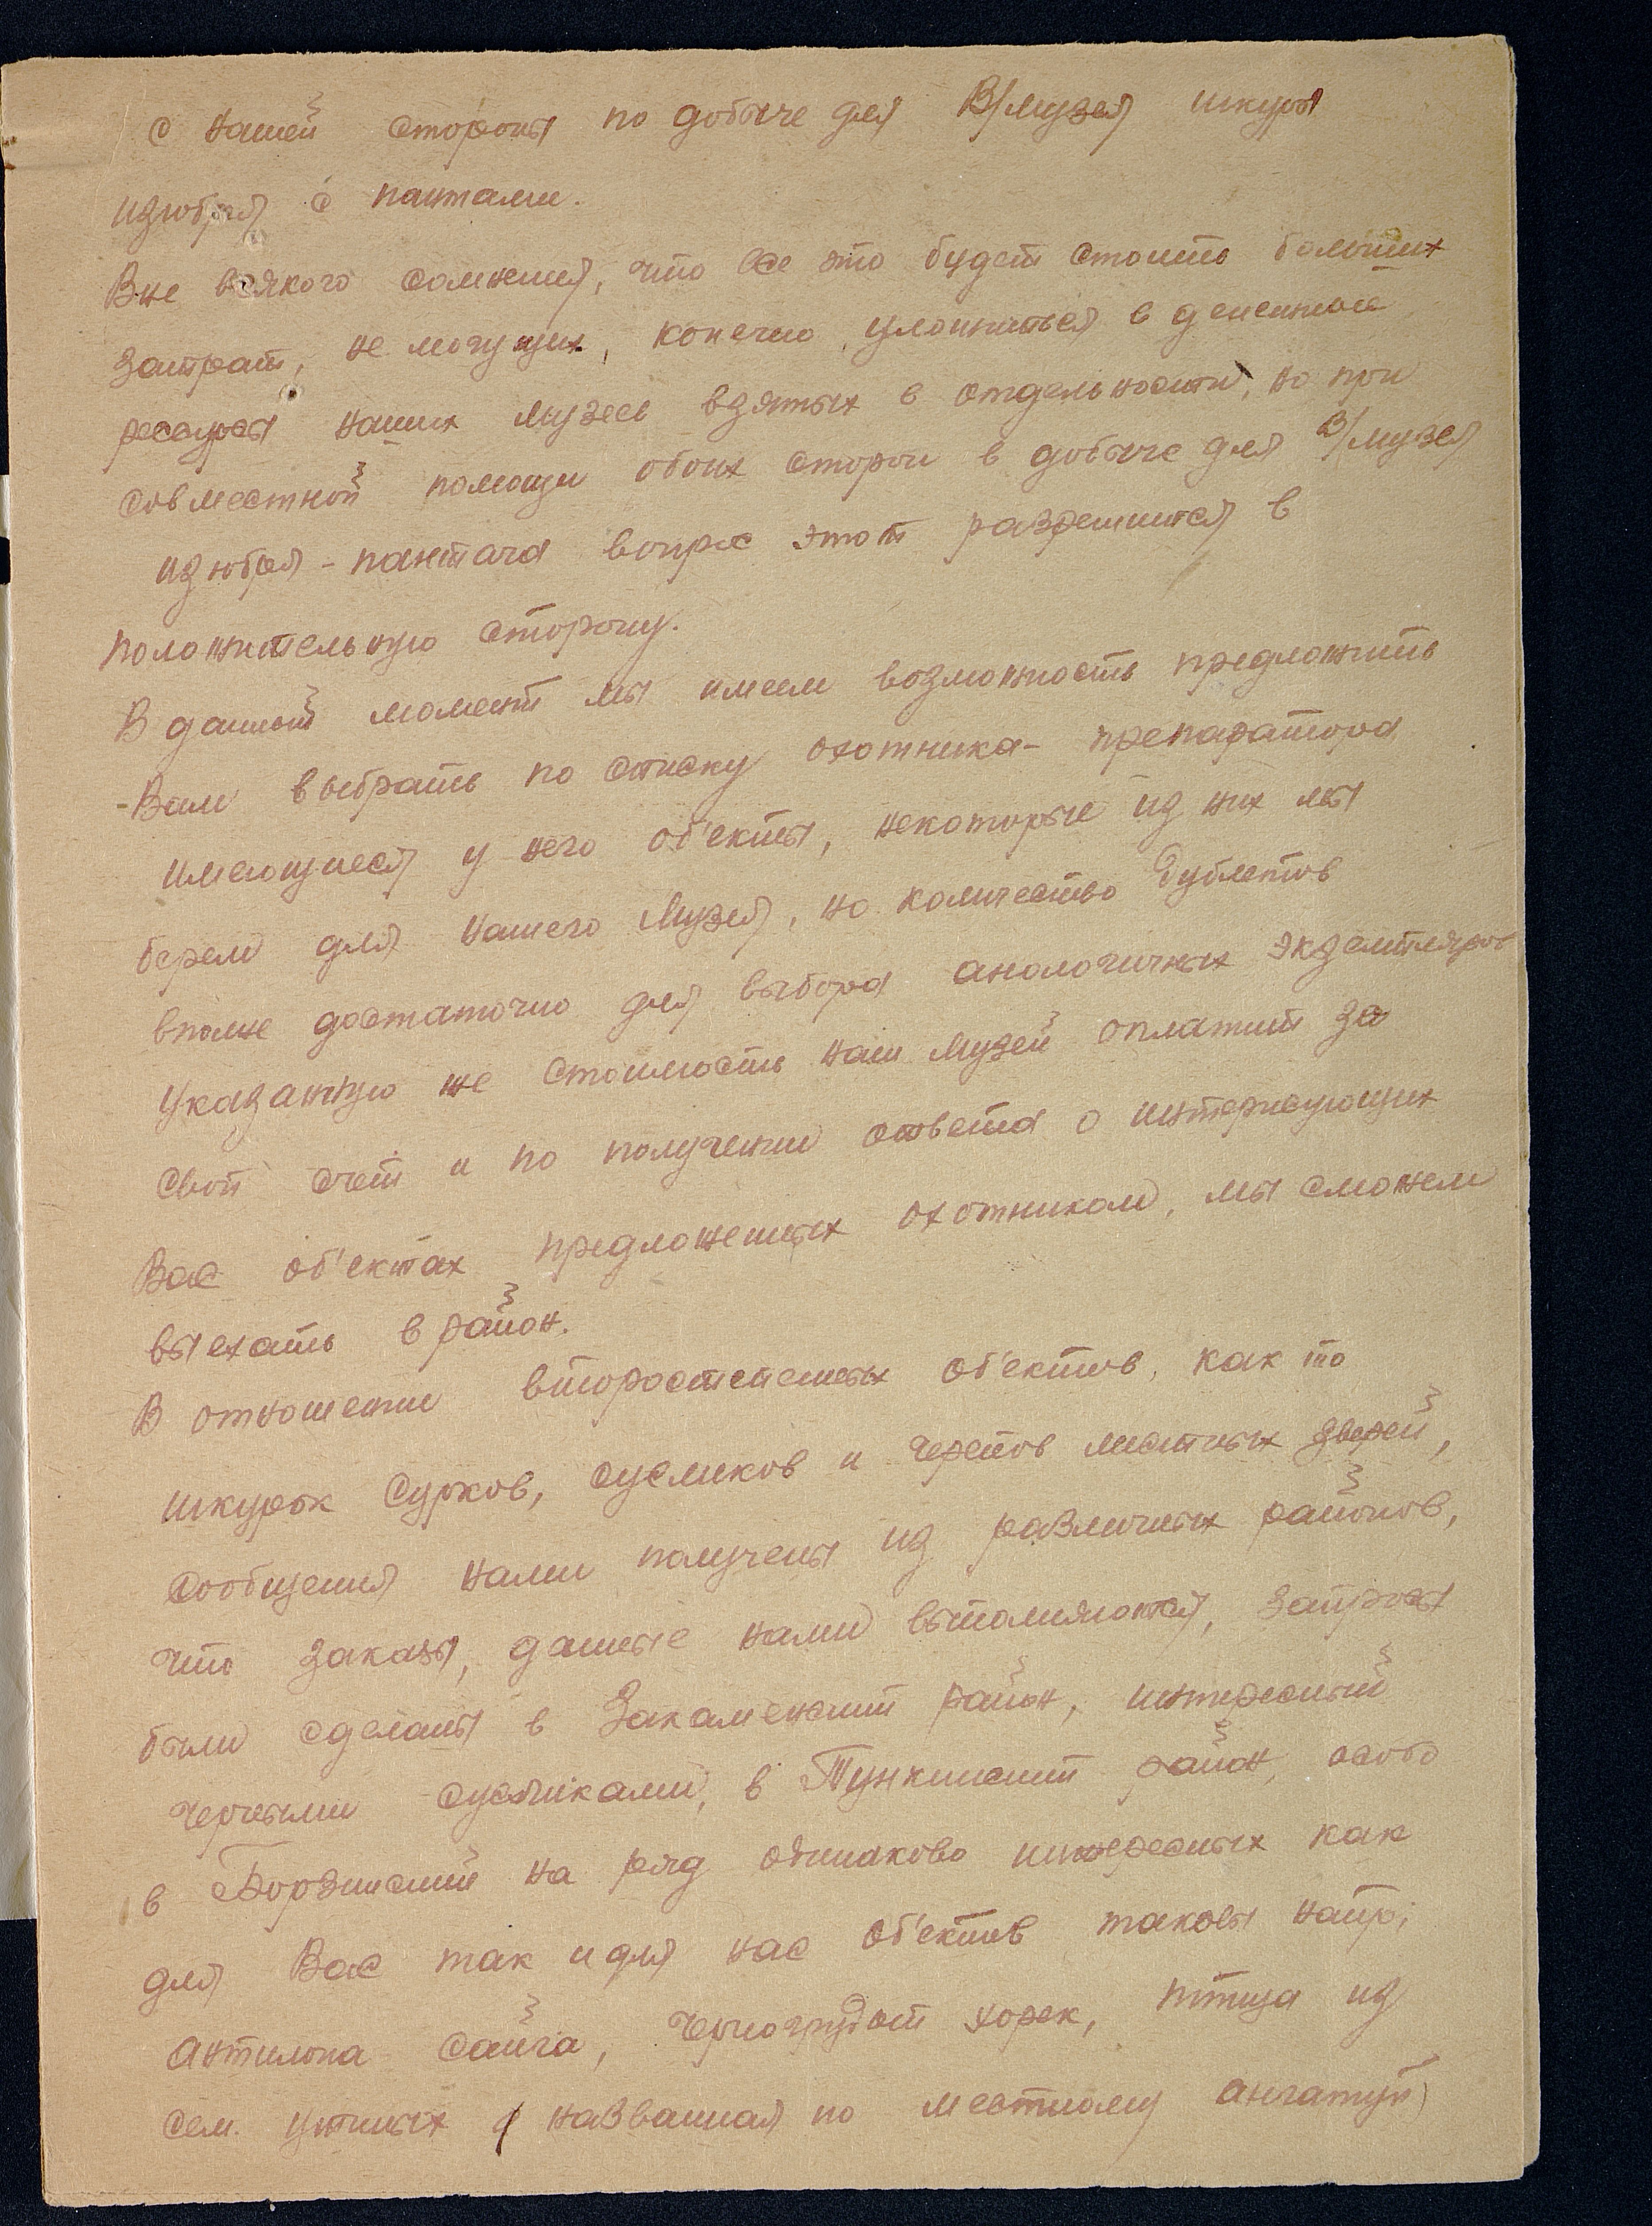 с нашей стороны по добыче для В/музея шкуры
изюбря с пантами.
Вне всякого сомнения, что все это будет стоить больших
затрат, не могущих, конечно, уложиться в денежные
ресурсы наших музеев взятых в отдельности, но при
совместной помощи обоих сторон в добыче для В/музея
изюбря - пантача вопрос этот разрешится в
положительную сторону.
В данный момент мы имеем возможность предложить
Вам выбрать по списку охотника - препаратора
имеющиеся у него об'екты, некоторые из них мы
берем для нашего Музея, но количество дублетов
вполне достаточно для выбора аналогичных экземпляров
Указанную же стоимость наш Музей оплатит за
свой счет и по получении ответа о интересующих
Вас об'ектах предложенных охотником, мы сможем
выехать в район.
В отношении второстепенных об'ектов, как то
шкурок сурков, сусликов и черепов местных зверей,
сообщения нами получены из различных районов,
что заказы, данные нами выполняются, запросы
были сделаны в Закаменский район, интересный
черными сусликами, в Тункинский район, особо
в Борзинский на ряд одинаково интересных как
для Вас так и для нас об'ектов таковы напр;
антилопа сайга, черногрудый хорек, птица из
сем. утиных ( названная по местному ангатуй)